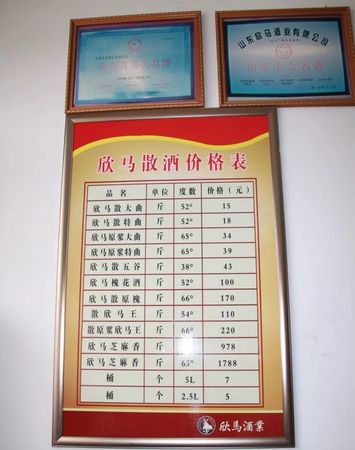 山东欣马酒业有限公司
山东十大名酒
欣马散酒价格表
品名 单位 度数 价格（元）
欣马散大曲 斤 52° 15
欣马散特曲 斤 52° 18
欣马原浆大曲 斤 65° 34
欣马原浆特曲 斤 65° 39
欣马散五谷 斤 38° 43
欣马槐花酒 斤 52° 100
欣马散原槐 斤 66° 170
散欣马王 斤 54° 110
散原浆欣马王 斤 66° 220
欣马芝麻香 斤 978
欣马芝麻香 斤 65° 1788
桶 个 5L 7
桶 个 2.5L 5
欣马酒业